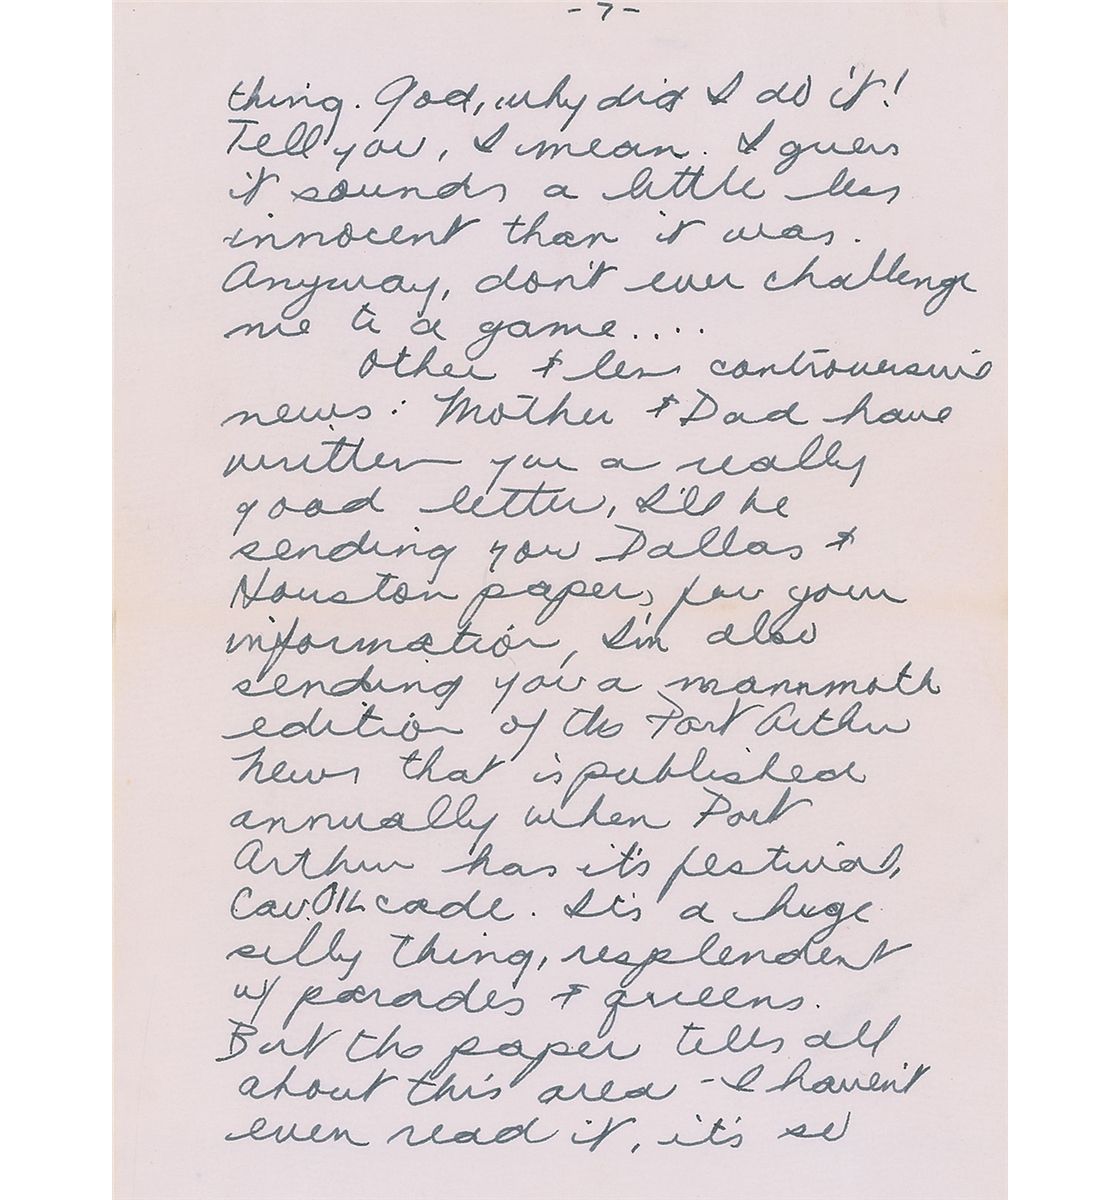 -7-
thing. God, why did I do it!
Tell you, I mean. I guess
it sounds a little less
innocent than it was.
Anyway, don't ever challenge
me to a game....
Other & less controversial
news: Mother & Dad have
written you a really
good letter, I'll be
sending you Dallas &
Houston papers for your
information, I'm also
sending you a mammoth
edition of the Port Arthur
News that is published
annually when Port
Arthur has it's festival,
CavOILcade. It's a huge
silly thing, resplendent
w/ parades & queens.
But the paper tells all
about this area - I haven't
even read it, it's so